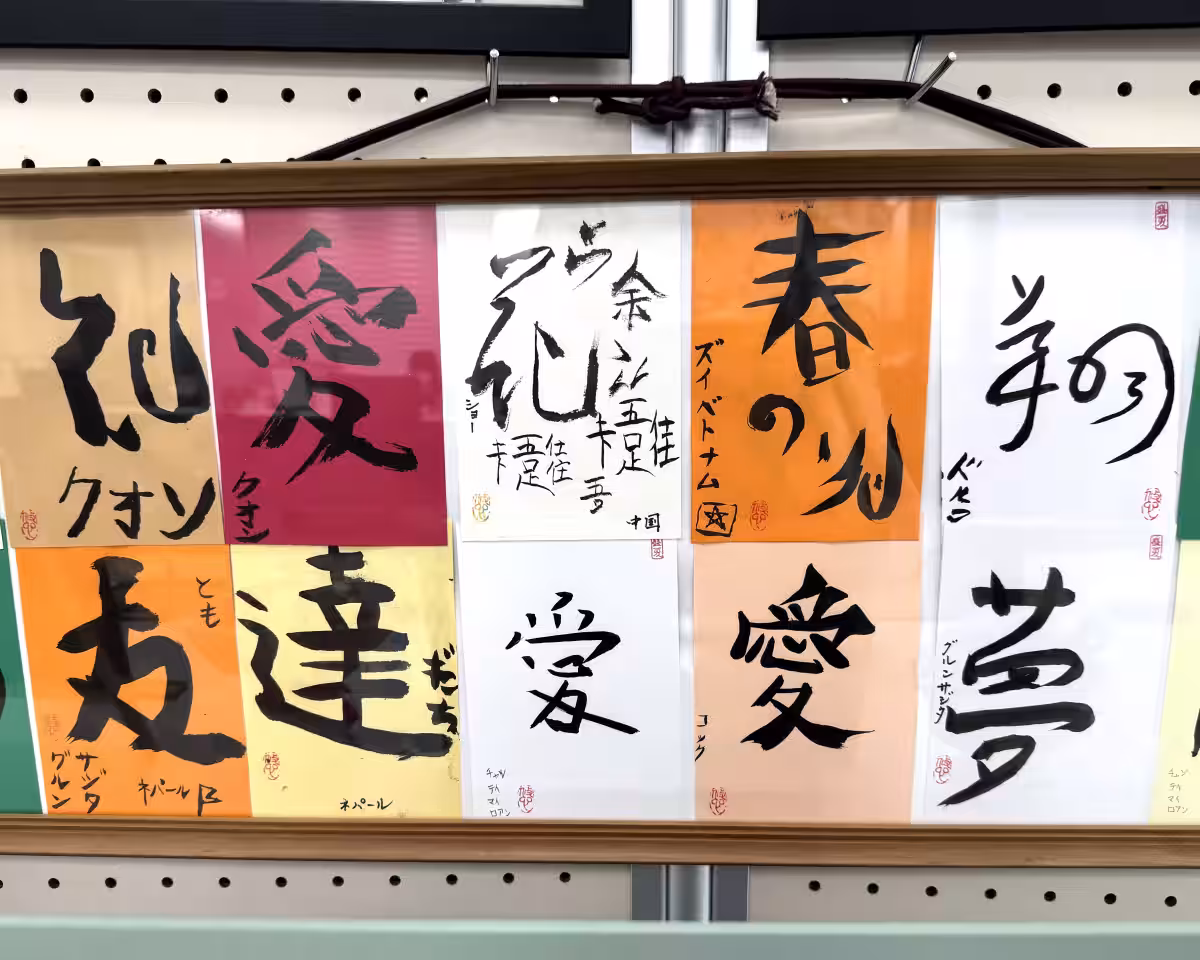 礼
クオン
愛
クオン
余
ショー
中国
春
の
光
ズイ
ベトナム
翔
友
とも
サジタ
グルン
ネパール
達
だち
ネパール
愛
チャン
テイ
マイ
ロアン
愛
夢
グルンサジタ
チャン
テイ
マイ
ロアン